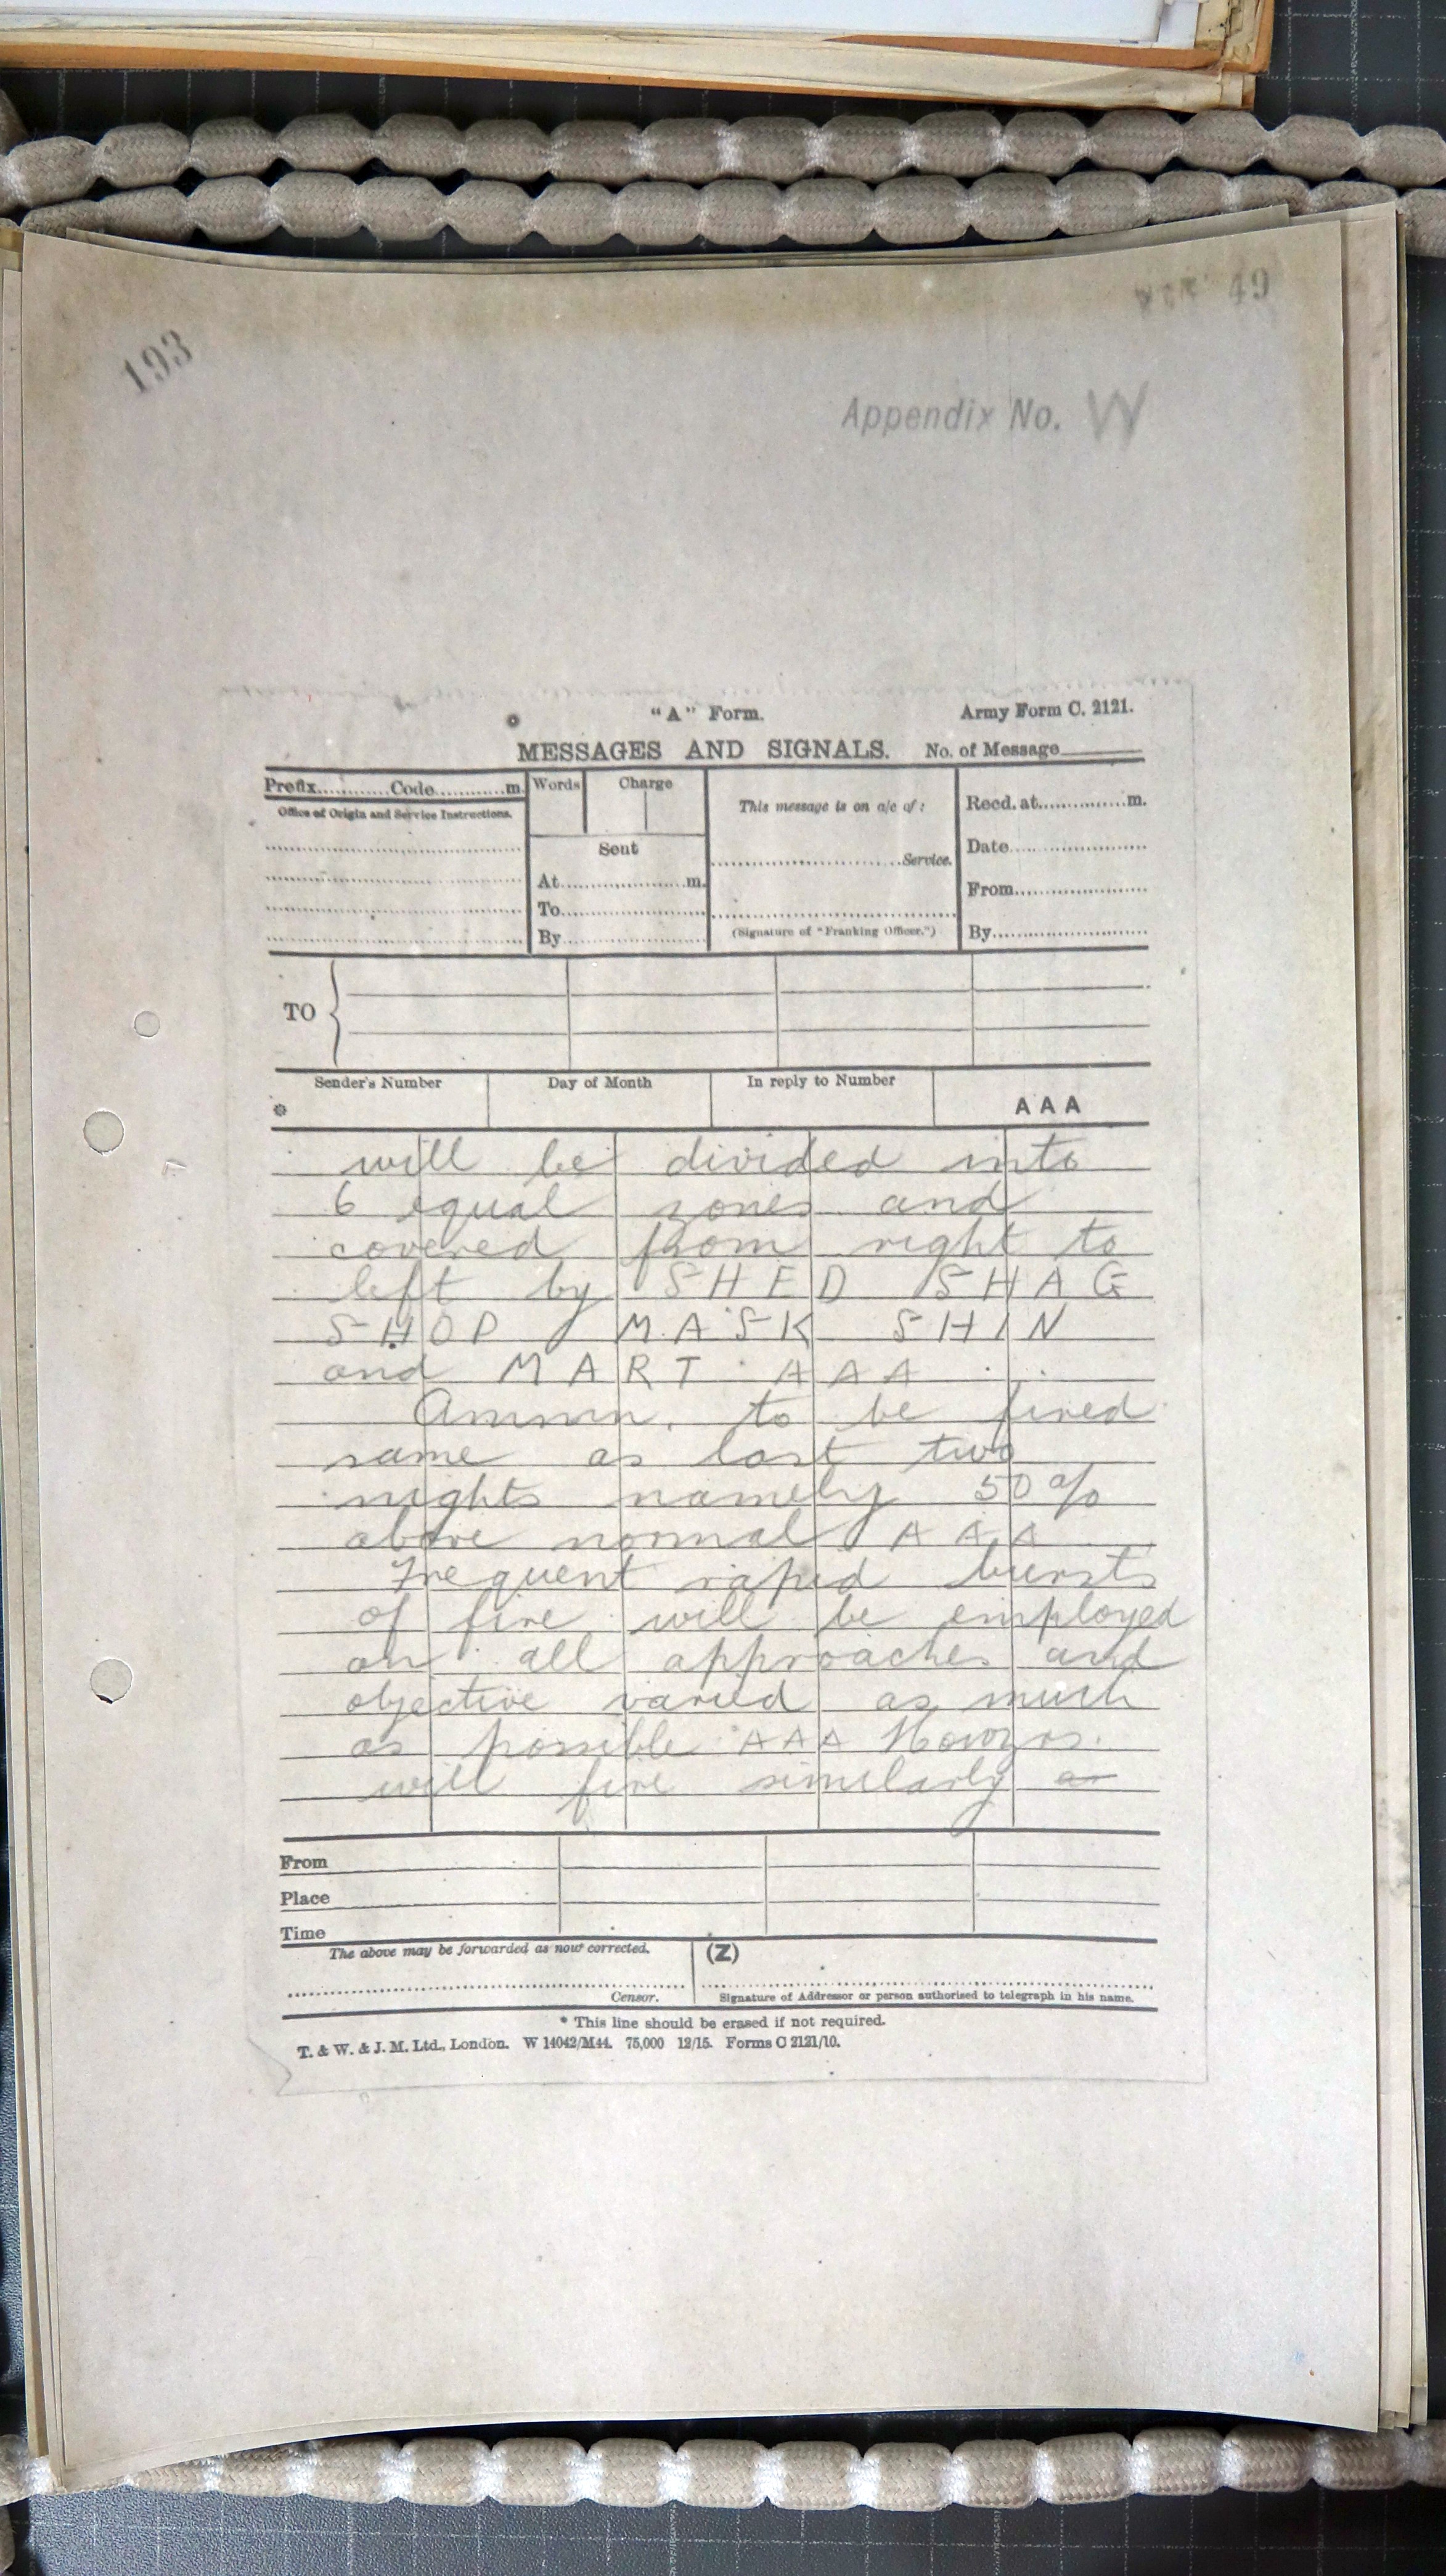 193
49
Appendix No. W
"A" Form.
Army Form C. 2121.
MESSAGES AND SIGNALS. No. of Message
Prefix............Code............m.
Words
Charge
This message is on a/c of:
Recd. at..............m.
Office of Origin and Service Instructions.
Sent
........................Service.
Date........................
At....................m.
From........................
To........................
(Signature of "Franking Officer.")
By........................
By........................
TO
Sender's Number
Day of Month
In reply to Number
AAA
*
will be divided into
6 equal zones and
covered from right to
left by SHED SHAG
SHOP MASK SHIN
and MART AAA
Ammn. to be fired
same as last two
nights namely 50%
above normal AAA
Frequent rapid bursts
of fire will be employed
on all approaches and
objective varied as much
as possible AAA Howzrs.
will fire similarly as
From
Place
Time
The above may be forwarded as now corrected.
(Z)
Censor.
Signature of Addressor or person authorised to telegraph in his name.
* This line should be erased if not required.
T. & W. & J. M. Ltd., London. W 14042/M44. 75,000 12/15. Forms C 2121/10.